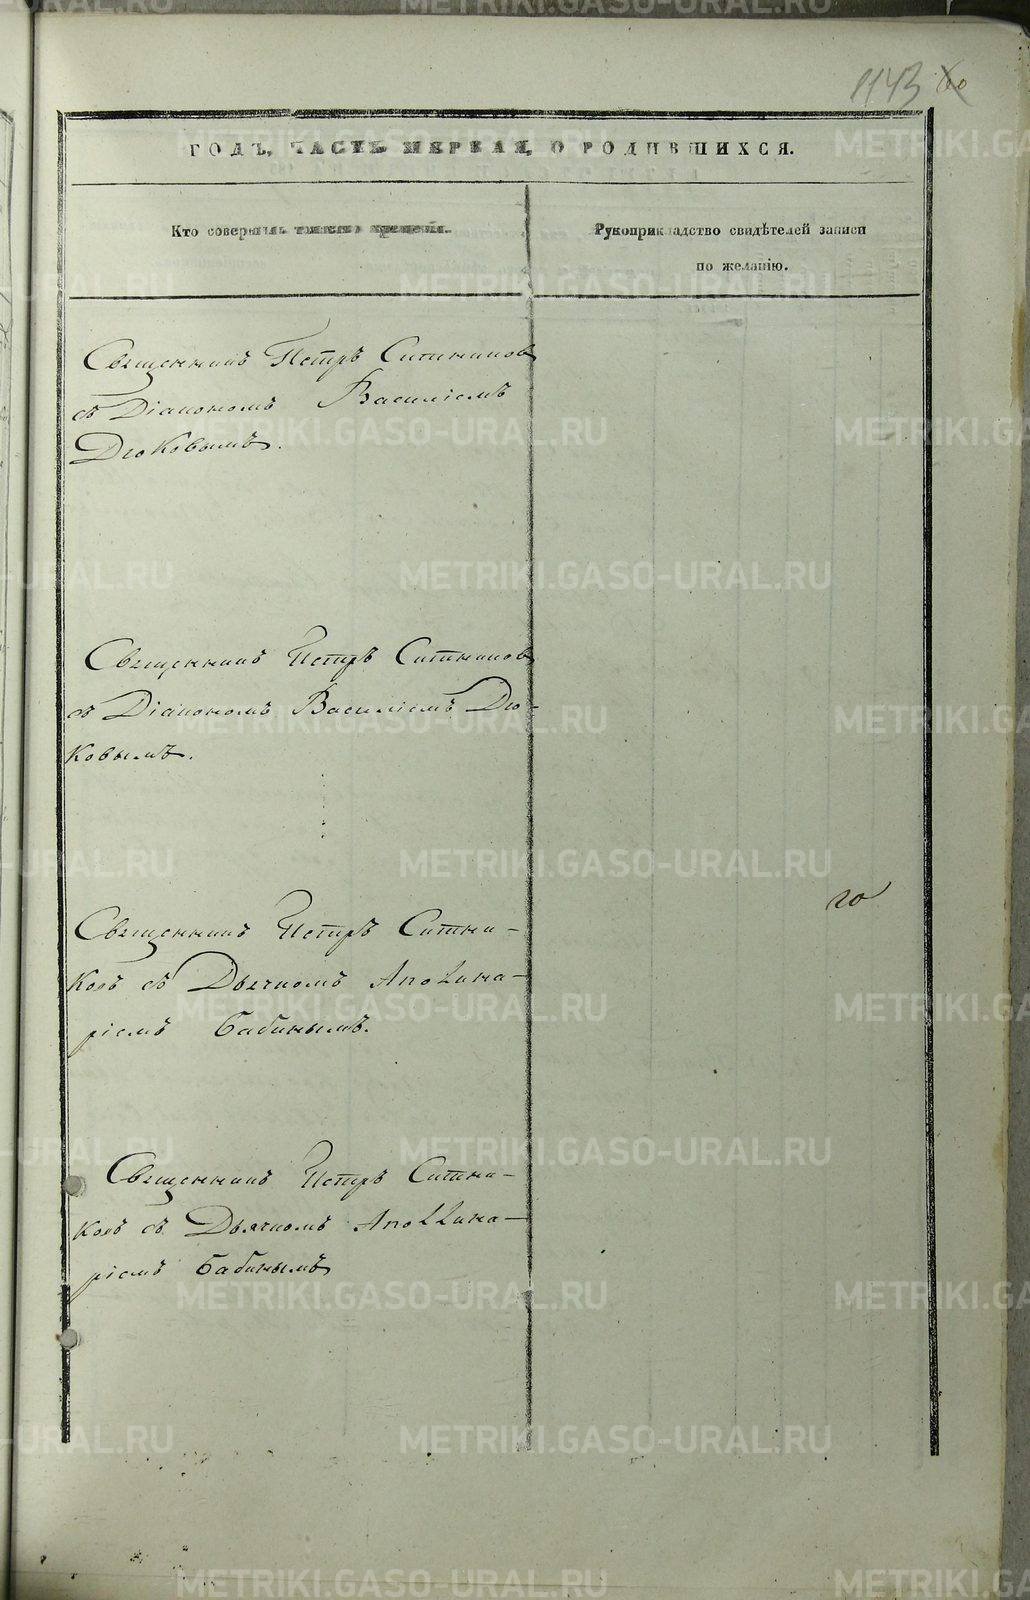 1143
60
ГОДЪ, ЧАСТЬ ПЕРВАЯ, О РОДИВШИХСЯ.
Кто совершалъ таинство крещенія.
Рукоприкладство свидѣтелей записи
по желанію.
Священникъ Петръ Ситниковъ
съ Діакономъ Василіемъ
Дюковымъ.
Священникъ Петръ Ситниковъ
съ Діакономъ Василіемъ Дю-
ковымъ.
го
Священникъ Петръ Ситни-
ковъ съ Дьячкомъ Аполина-
ріемъ Бабинымъ.
Священникъ Петръ Ситни-
ковъ съ Дьячкомъ Аполлина-
ріемъ Бабинымъ
METRIKI.GASO-URAL.RU